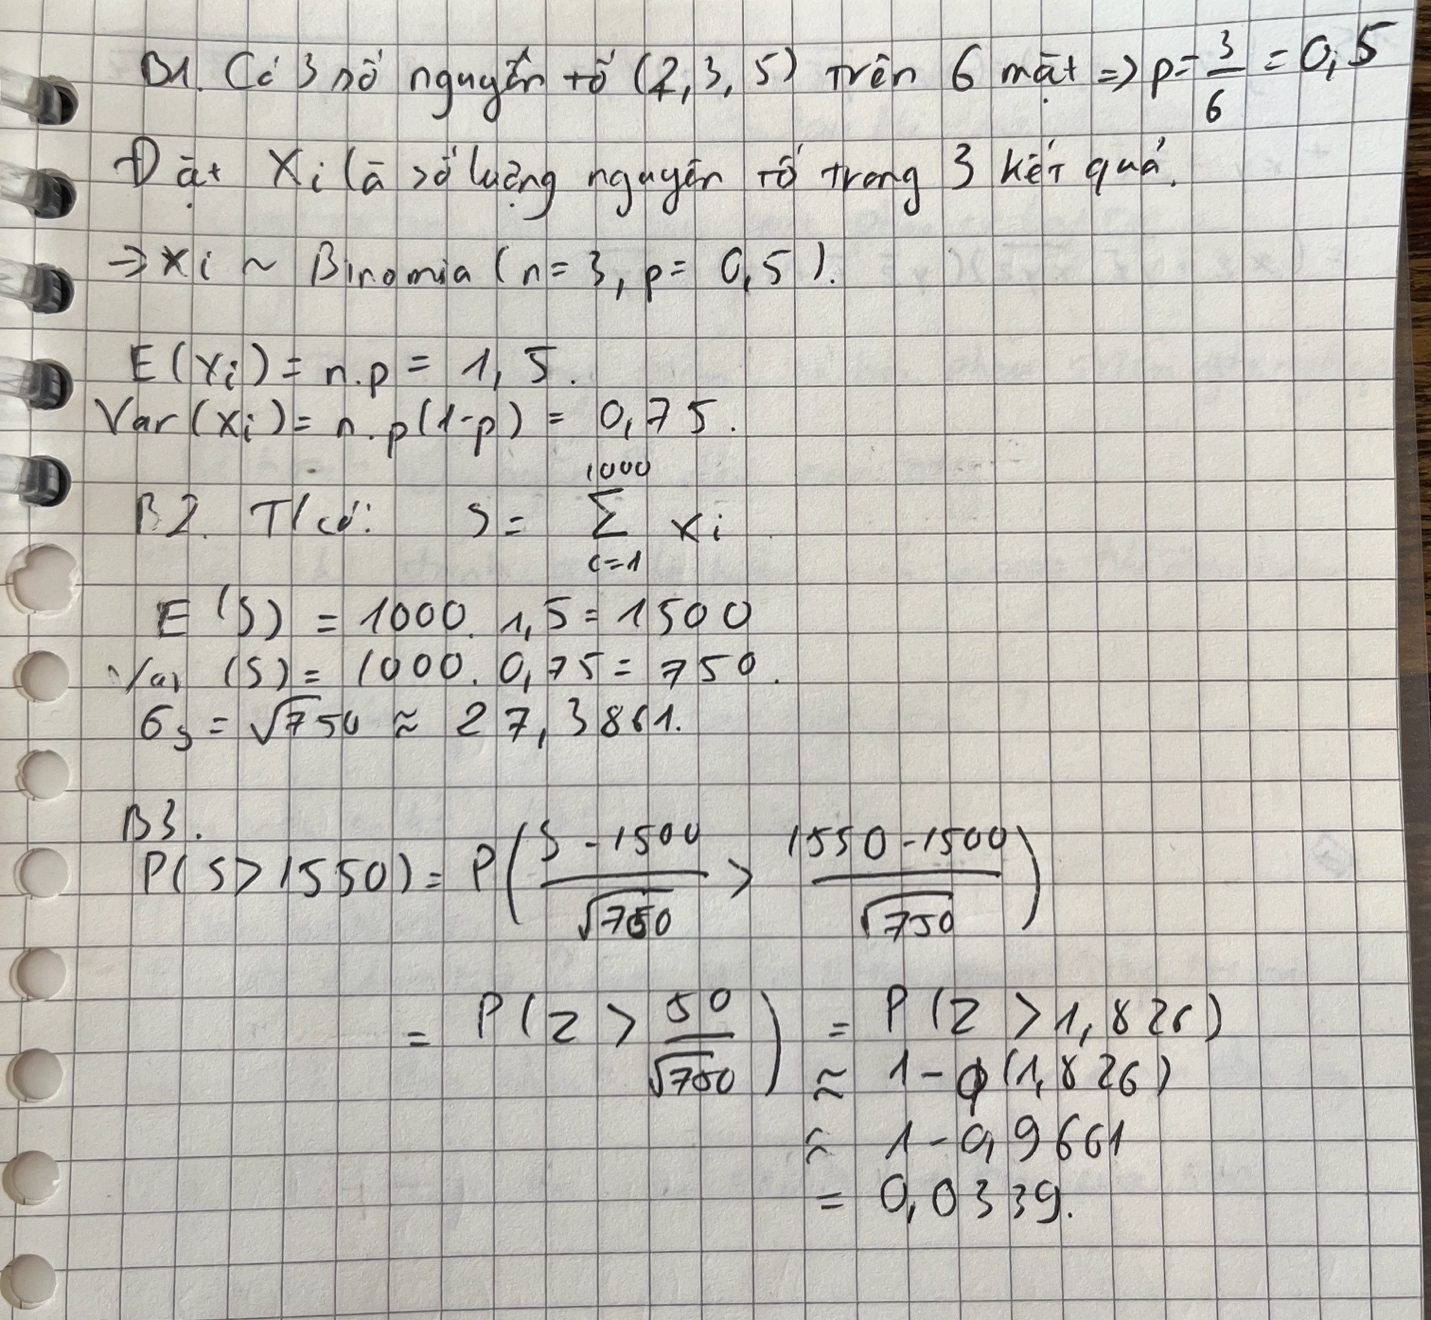 B1. Có 3 số nguyên tố (2, 3, 5) trên 6 mặt => p = 3/6 = 0,5
Đặt Xi là số lượng nguyên tố trong 3 kết quả.
=> Xi ~ Binomia (n = 3, p = 0,5).
E(Xi) = n.p = 1,5.
Var(Xi) = n.p(1-p) = 0,75.
B2. T/có: S = ∑_{i=1}^{1000} Xi
E(S) = 1000. 1,5 = 1500
Var (S) = 1000. 0,75 = 750.
σs = √750 ≈ 27,3861.
B3.
P(S > 1550) = P( (S - 1500)/√750 > (1550 - 1500)/√750 )
= P(Z > 50/√750) = P(Z > 1,826)
≈ 1 - φ(1,826)
≈ 1 - 0,9661
= 0,0339.